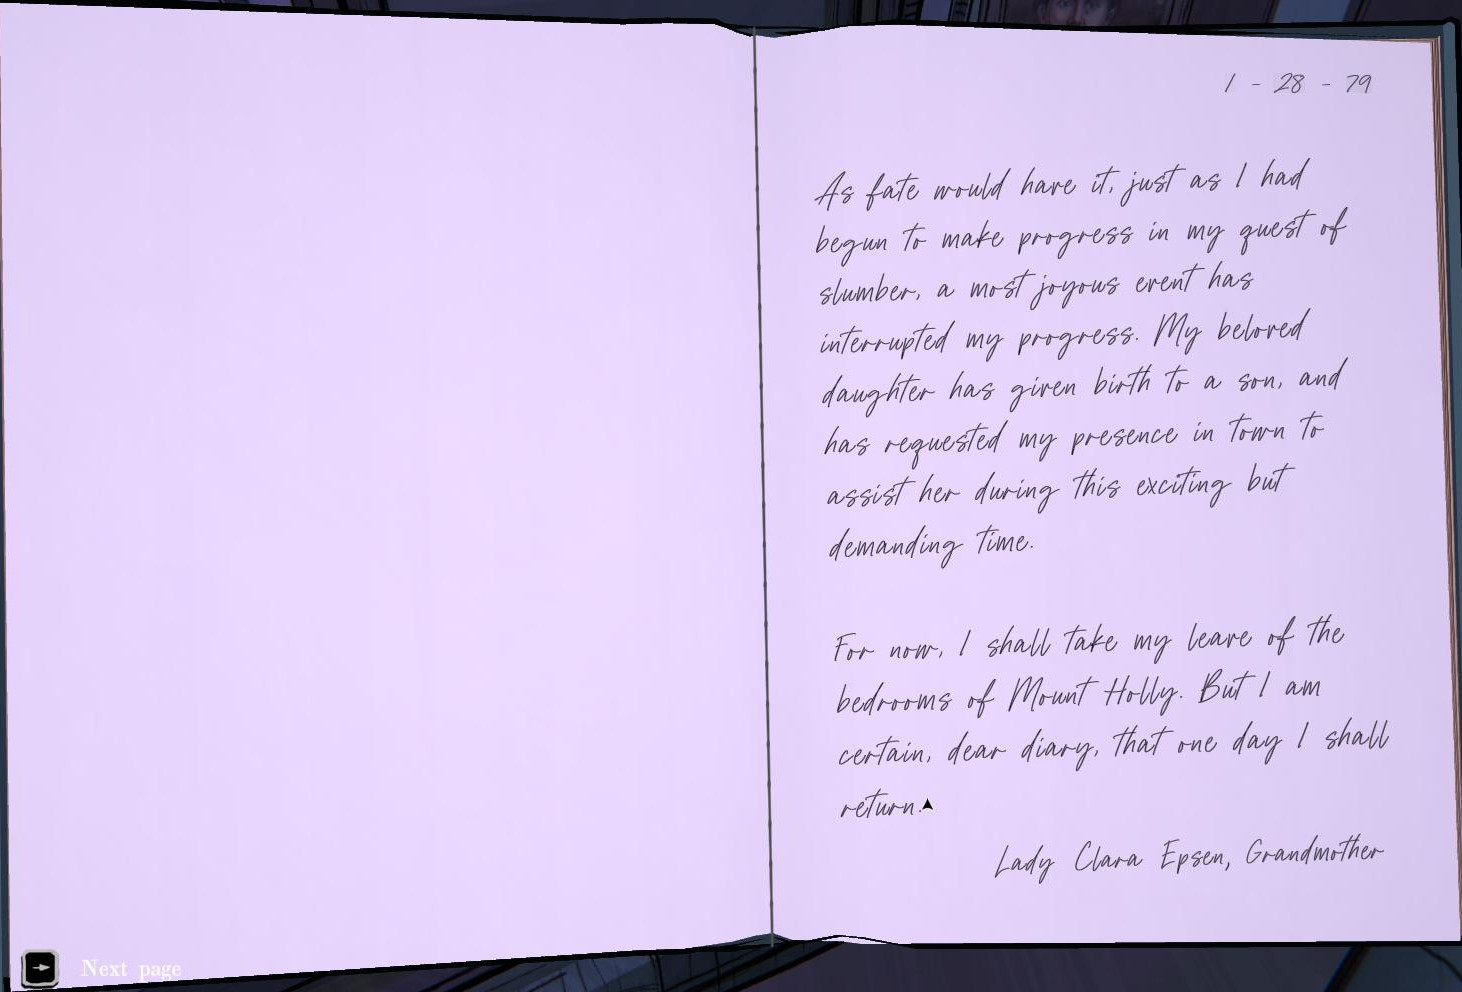 1 - 28 - 79
As fate would have it, just as I had
begun to make progress in my quest of
slumber, a most joyous event has
interrupted my progress. My beloved
daughter has given birth to a son, and
has requested my presence in town to
assist her during this exciting but
demanding time.
For now, I shall take my leave of the
bedrooms of Mount Holly. But I am
certain, dear diary, that one day I shall
return.
Lady Clara Epsen, Grandmother
Next page